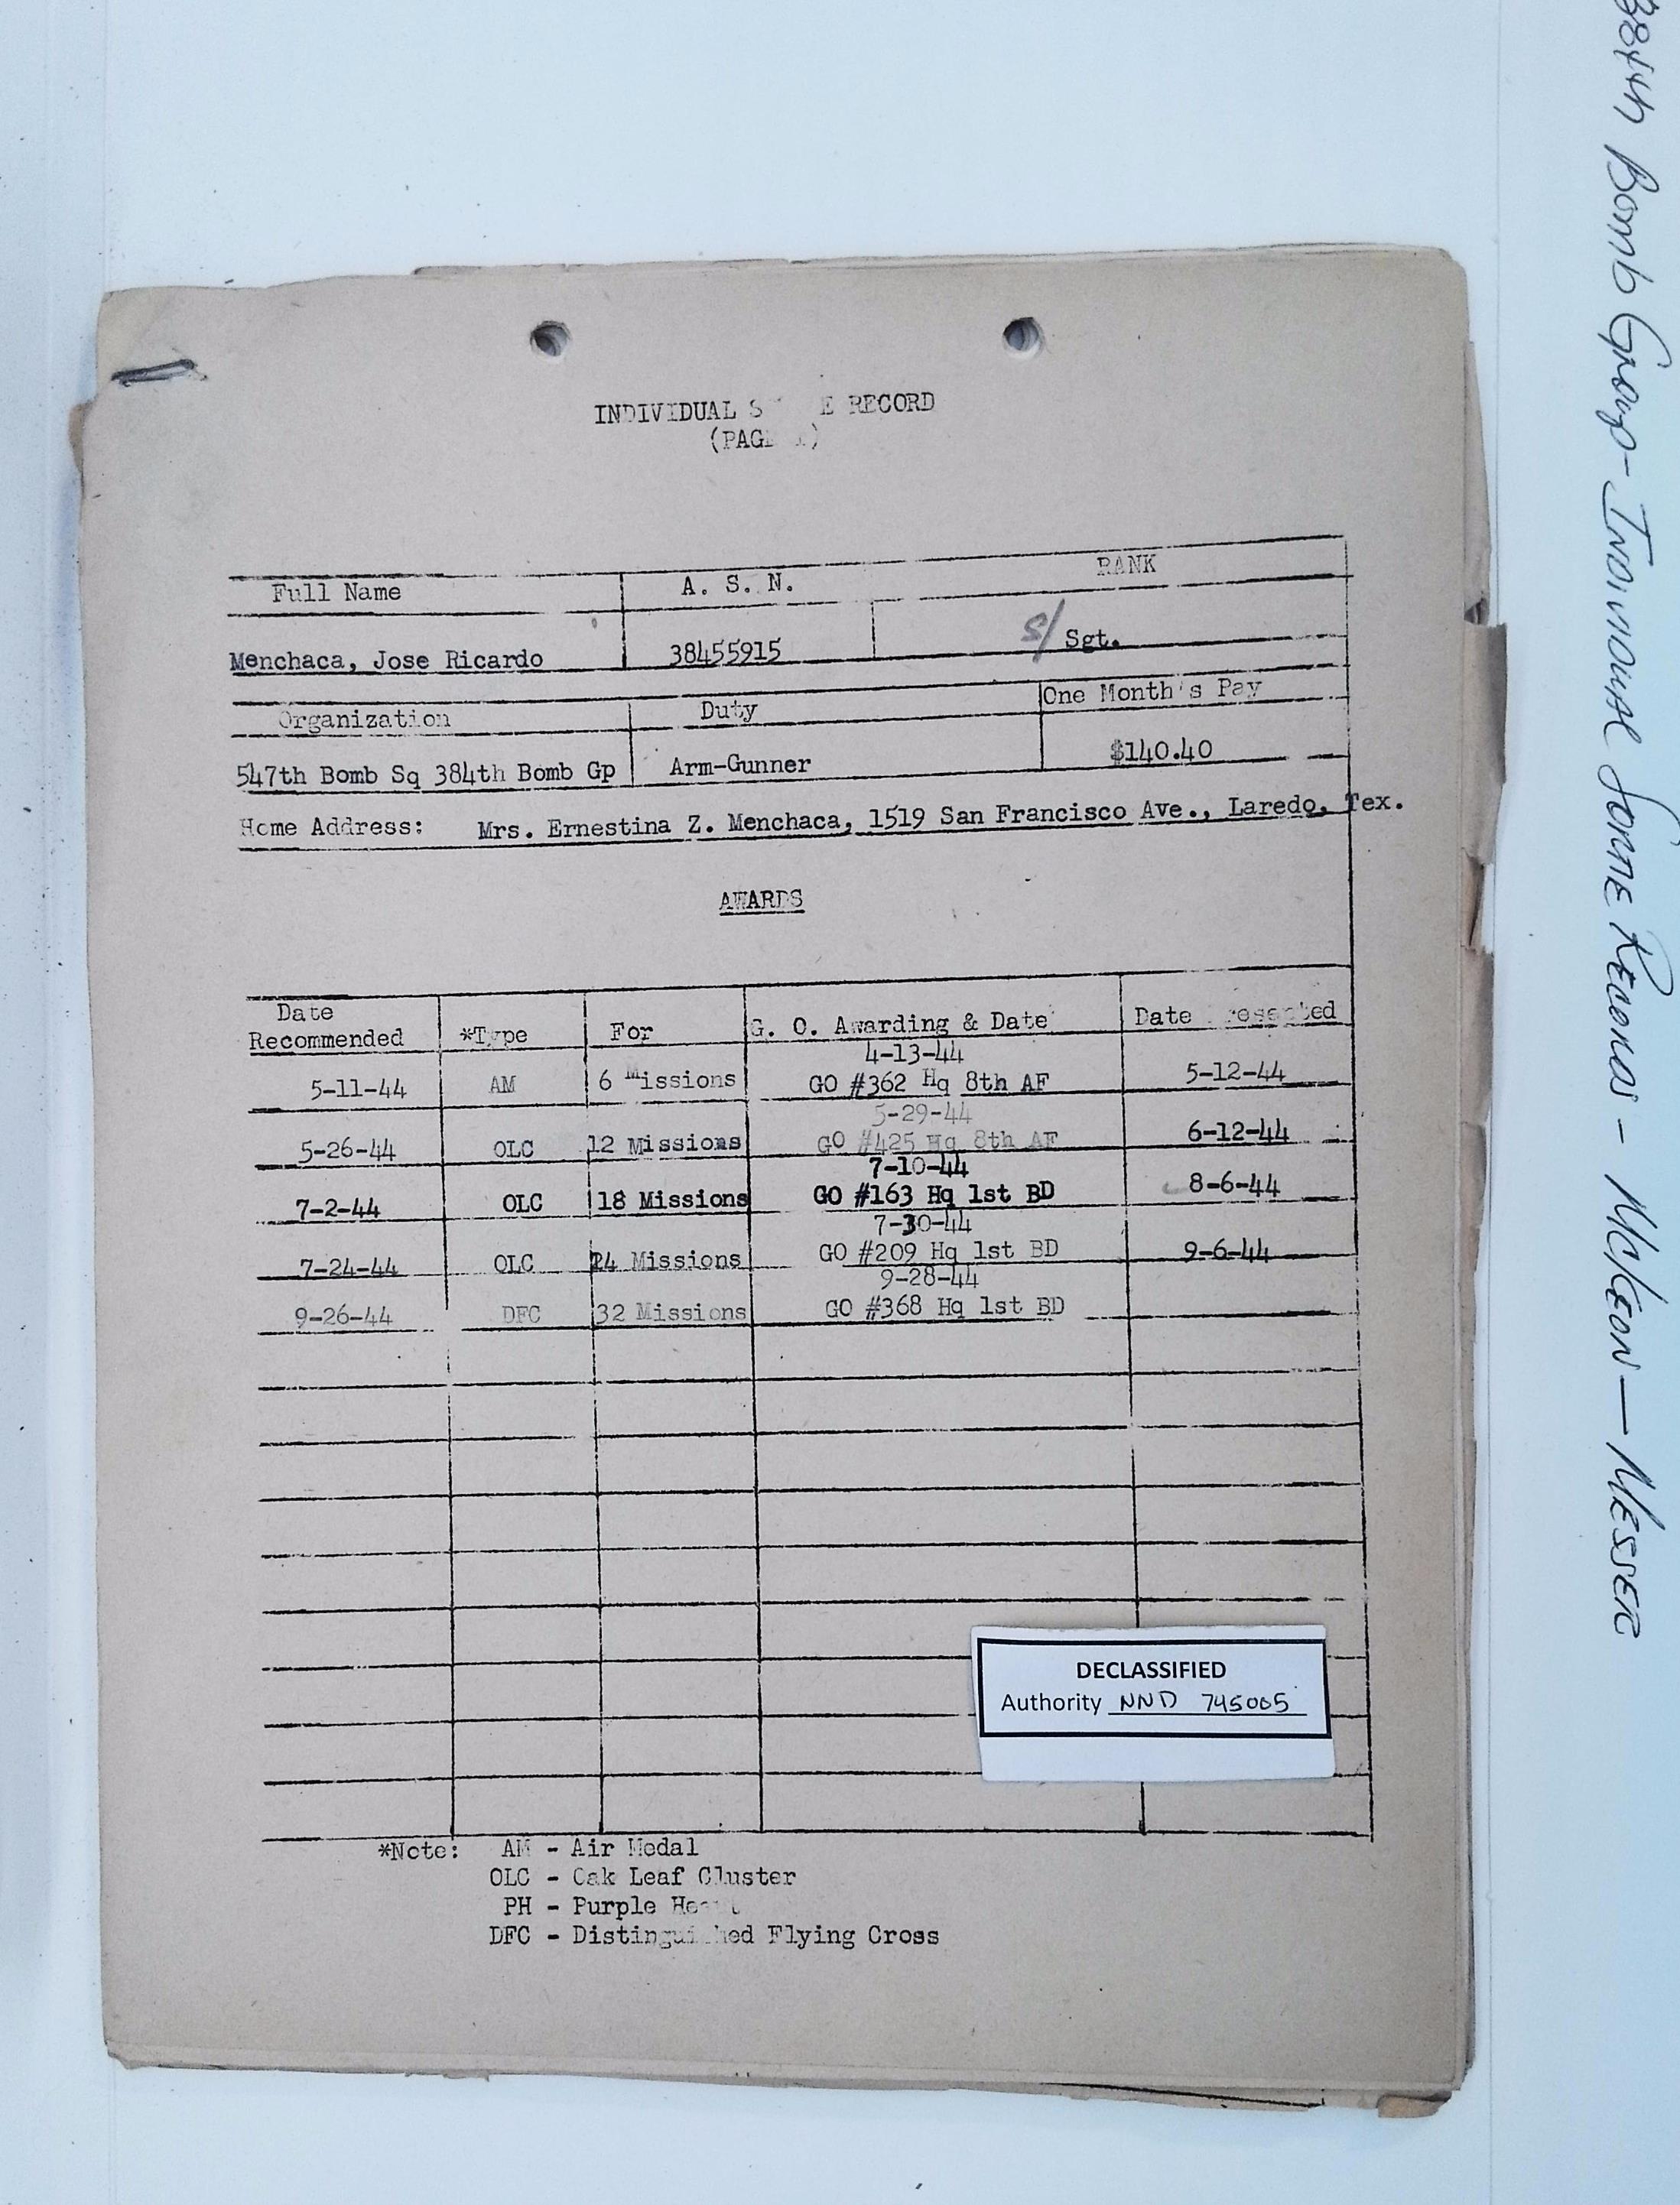 INDIVIDUAL S E RECORD
(PAG )
Full Name A. S. N. RANK
Menchaca, Jose Ricardo 38455915 S/ Sgt.
Organization Duty One Month's Pay
547th Bomb Sq 384th Bomb Gp Arm-Gunner $140.40
Home Address: Mrs. Ernestina Z. Menchaca, 1519 San Francisco Ave., Laredo, Tex.
AWARDS
Date
Recommended *Type For G. O. Awarding & Date Date resented
4-13-44
5-11-44 AM 6 Missions GO #362 Hq 8th AF 5-12-44
5-29-44
5-26-44 OLC 12 Missions GO #425 Hq 8th AF 6-12-44
7-10-44
7-2-44 OLC 18 Missions GO #163 Hq 1st BD 8-6-44
7-30-44
7-24-44 OLC 24 Missions GO #209 Hq 1st BD 9-6-44
9-28-44
9-26-44 DFC 32 Missions GO #368 Hq 1st BD
DECLASSIFIED
Authority NND 745005
*Note: AM - Air Medal
OLC - Oak Leaf Cluster
PH - Purple
DFC - Distinguished Flying Cross
384th Bomb Group - Individual Sortie Records - McKeon - Messer